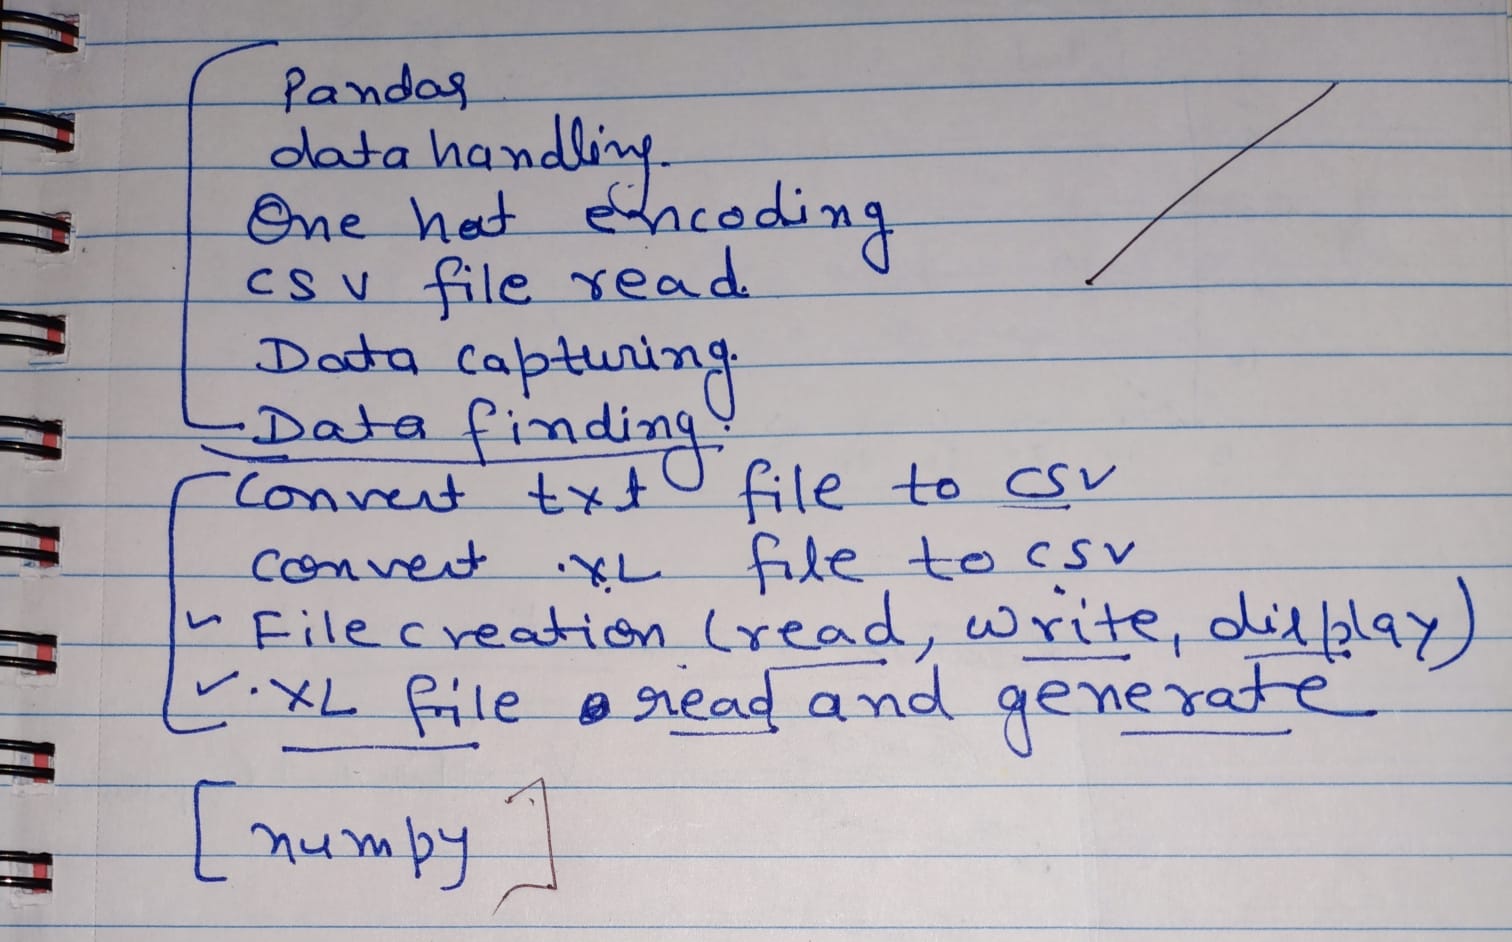 Pandas
data handling.
One hot encoding
csv file read.
Data capturing.
Data finding.
Convert txt file to csv
Convert .XL file to csv
File creation (read, write, display)
.XL file read and generate
[numpy]